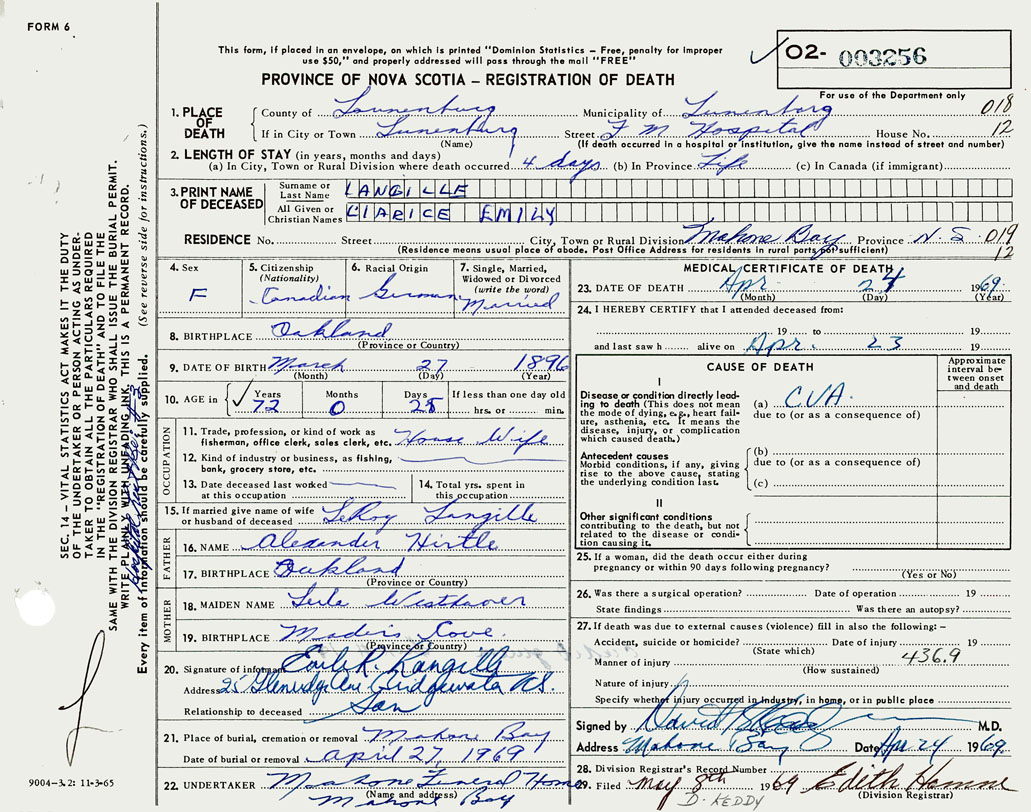 FORM 6
This form, if placed in an envelope, on which is printed "Dominion Statistics – Free, penalty for improper
use $50," and properly addressed will pass through the mail "FREE"
PROVINCE OF NOVA SCOTIA – REGISTRATION OF DEATH
02- 003256
For use of the Department only
1. PLACE OF DEATH
County of Lunenburg Municipality of Lunenburg 018
If in City or Town Lunenburg Street F M Hospital House No. 12
(Name) (If death occurred in a hospital or institution, give the name instead of street and number)
2. LENGTH OF STAY (in years, months and days)
(a) In City, Town or Rural Division where death occurred 4 days (b) In Province Life (c) In Canada (if immigrant)
3. PRINT NAME OF DECEASED
Surname or Last Name LANGILLE
All Given or Christian Names CLARICE EMILY
RESIDENCE No. Street City, Town or Rural Division Mahone Bay Province N.S. 019
(Residence means usual place of abode. Post Office Address for residents in rural parts not sufficient) 12
4. Sex
F
5. Citizenship
(Nationality)
Canadian
6. Racial Origin
German
7. Single, Married,
Widowed or Divorced
(write the word)
Married
8. BIRTHPLACE Oakland
(Province or Country)
9. DATE OF BIRTH March 27 1896
(Month) (Day) (Year)
10. AGE in Years Months Days If less than one day old
72 0 28 hrs. or min.
OCCUPATION
11. Trade, profession, or kind of work as
fisherman, office clerk, sales clerk, etc. House Wife
12. Kind of industry or business, as fishing,
bank, grocery store, etc.
13. Date deceased last worked
at this occupation
14. Total yrs. spent in
this occupation
15. If married give name of wife
or husband of deceased LeRoy Langille
FATHER
16. NAME Alexander Hirtle
17. BIRTHPLACE Oakland
(Province or Country)
MOTHER
18. MAIDEN NAME Westhaver
19. BIRTHPLACE Maders Cove
(Province or Country)
20. Signature of informant Langille
Address 25 Glenridge Ave Bridgewater N.S.
Relationship to deceased Son
21. Place of burial, cremation or removal Mahone Bay
Date of burial or removal April 27, 1969
22. UNDERTAKER Mahone Funeral Home
(Name and address)
Mahone Bay
MEDICAL CERTIFICATE OF DEATH
23. DATE OF DEATH Apr 24 1969
(Month) (Day) (Year)
24. I HEREBY CERTIFY that I attended deceased from:
19 to 19
and last saw h alive on Apr. 23 19
CAUSE OF DEATH
Approximate
interval be-
tween onset
and death
I
Disease or condition directly lead-
ing to death (This does not mean
the mode of dying, e.g., heart fail-
ure, asthenia, etc. It means the
disease, injury, or complication
which caused death.)
(a) CVA.
due to (or as a consequence of)
Antecedent causes
Morbid conditions, if any, giving
rise to the above cause, stating
the underlying condition last.
(b)
due to (or as a consequence of)
(c)
II
Other significant conditions
contributing to the death, but not
related to the disease or condi-
tion causing it.
25. If a woman, did the death occur either during
pregnancy or within 90 days following pregnancy?
(Yes or No)
26. Was there a surgical operation? Date of operation 19
State findings Was there an autopsy?
27. If death was due to external causes (violence) fill in also the following: –
Accident, suicide or homicide? Date of injury 19
(State which)
Manner of injury 436.9
(How sustained)
Nature of injury
Specify whether injury occurred in industry, in home, or in public place
Signed by David M.D.
Address Mahone Bay Date Apr 24 1969
28. Division Registrar's Record Number
29. Filed May 8th 1969 Edith
(Division Registrar)
D. KEDDY
SEC. 14 – VITAL STATISTICS ACT MAKES IT THE DUTY
OF THE UNDERTAKER OR PERSON ACTING AS UNDER-
TAKER TO OBTAIN ALL THE PARTICULARS REQUIRED
IN THE "REGISTRATION OF DEATH" AND TO FILE THE
SAME WITH THE DIVISION REGISTRAR WHO SHALL ISSUE THE BURIAL PERMIT.
WRITE PLAINLY WITH UNFADING INK. THIS IS A PERMANENT RECORD.
Every item of information should be carefully supplied. (See reverse side for instructions.)
9004-3.2: 11-3-65